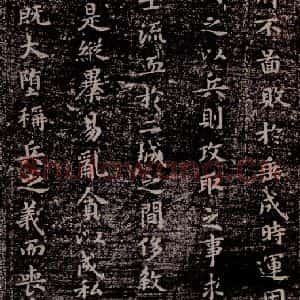 不啚敗於垂成時運固
之以兵則攻取之事求
士流血於二城之間侈煞
是縱暴易亂貪以成私
既大墮稱兵之義而喪